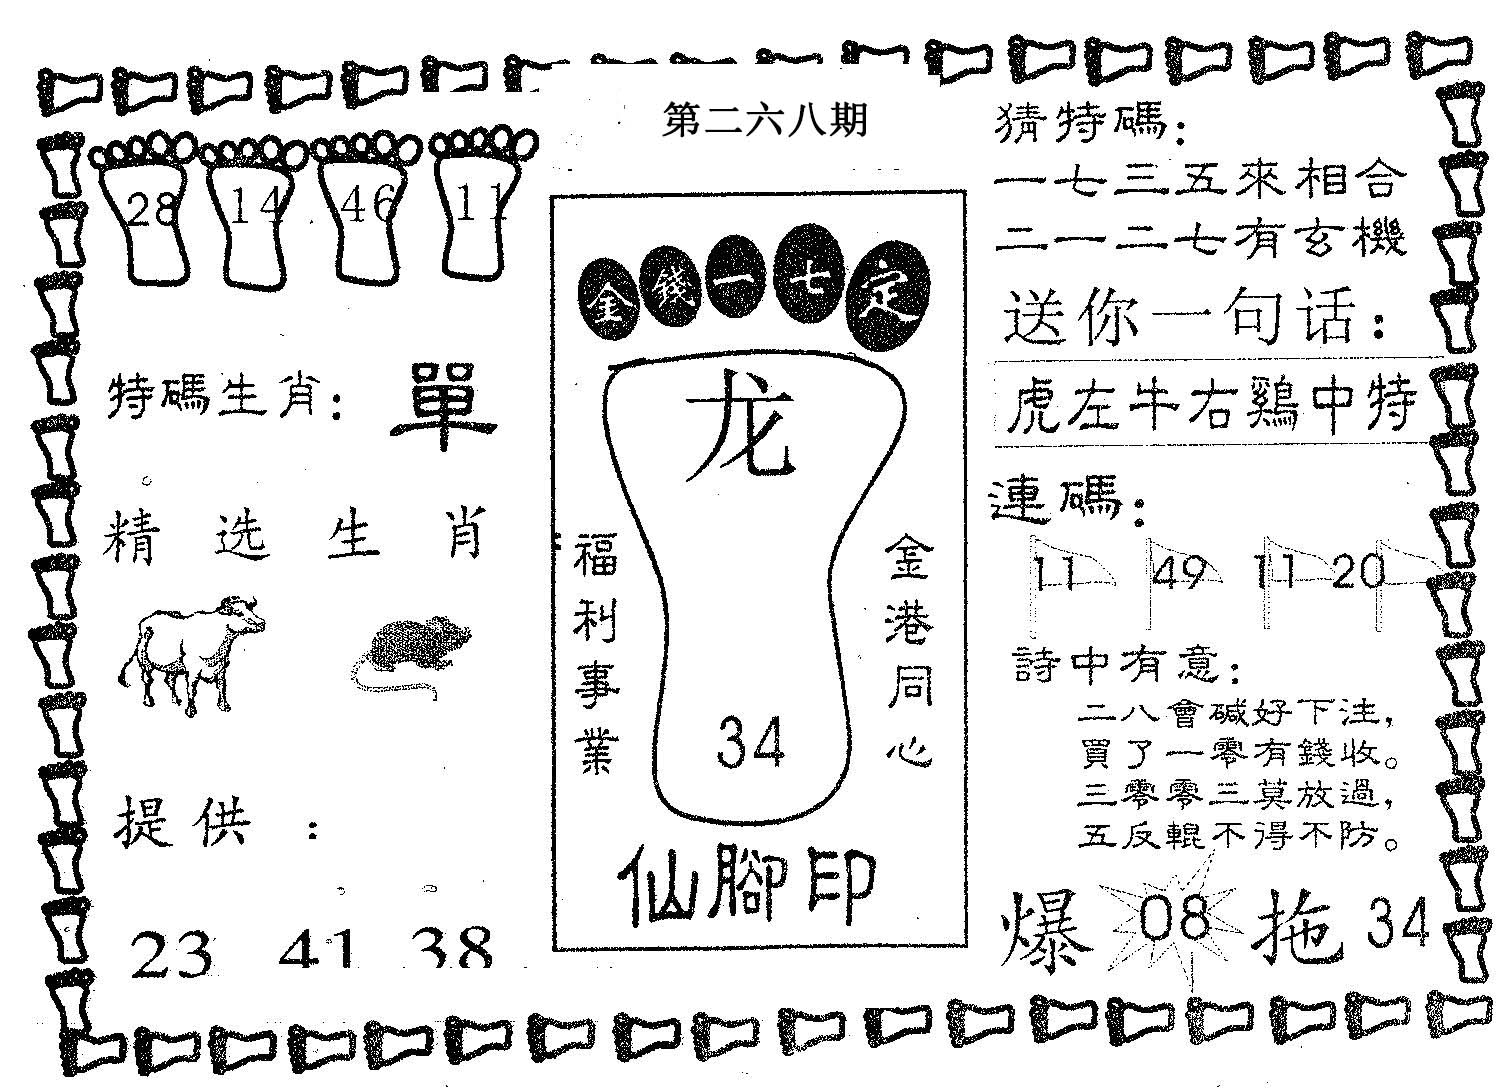 第二六八期
28 14 46 11
特碼生肖：單
精选生肖
提供：
23 41 38
金錢一七定
龙
福利事業
金港同心
34
仙腳印
猜特碼：
一七三五來相合
二一二七有玄機
送你一句话：
虎左牛右鷄中特
連碼：
11 49 11 20
詩中有意：
二八會碱好下注，
買了一零有錢收。
三零零三莫放過，
五反輥不得不防。
爆 08 拖 34